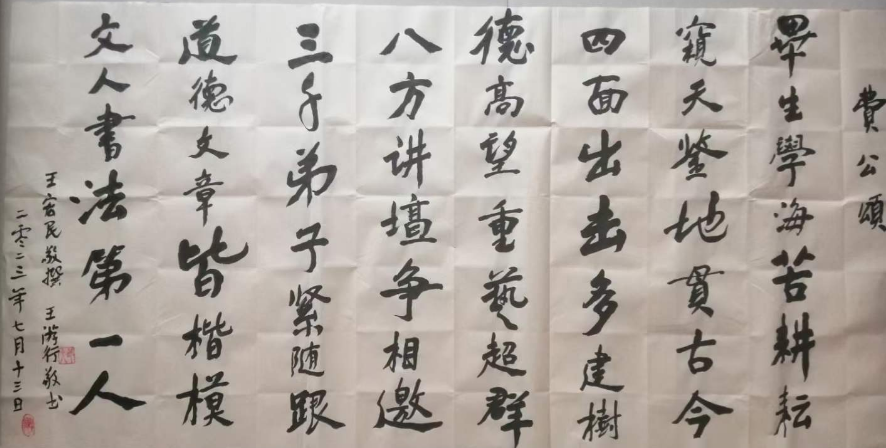 費公頌
畢生學海苦耕耘
窺天鑒地貫古今
四面出击多建樹
德高望重藝超群
八方讲壇争相邀
三千弟子紧随跟
道德文章皆楷模
文人書法第一人
王宏民敬撰 王洪行敬书
二零二三年七月十三日